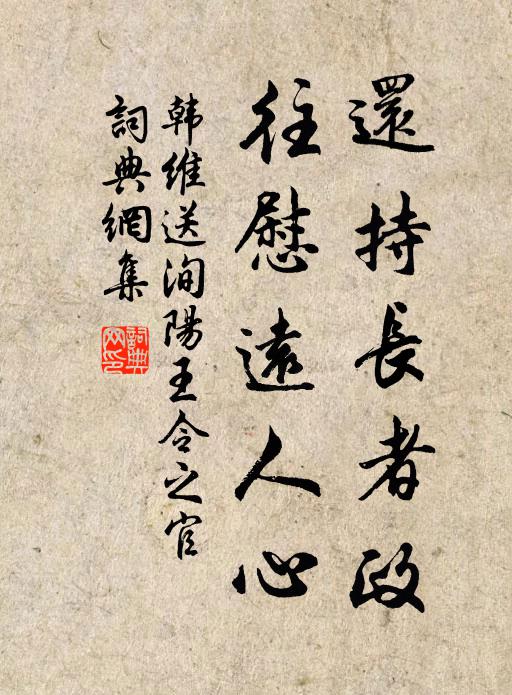 還持長者政
往慰遠人心
韩維送洵陽王令之官
詞典網集
詞典網印